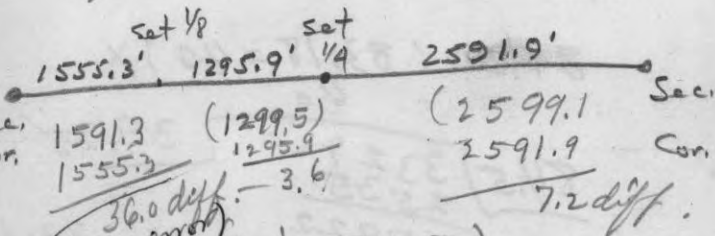 set 1/8 set
1555.3' 1295.9' 1/4 2591.9'
Sec.
1591.3 (1299.5) (2599.1
1555.3 1295.9 2591.9 Cor.
36.0 diff. - 3.6 7.2 diff.
error)